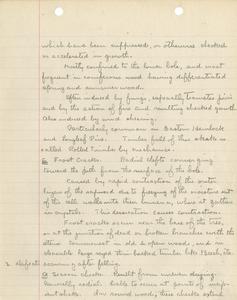 which have been suppressed, or otherwise checked
or accelerated in growth.
Mostly confined to the lower bole, and most
frequent in coniferous woods having differentiated
spring and summer wood.
Often induced by fungi, especially Trametes pini
and by the action of fire and resulting checked growth.
Also induced by wind shearing.
Particularly common in Eastern Hemlock
and Longleaf Pine. Timber full of this shake is
called Rotted timber by mechanics.
Frost Cracks. Radial clefts converging
toward the pith from the surface of the bole.
Caused by rapid contraction of the outer
layers of the sapwood due to freezing of the moisture out
of the cell walls into the lumen, where it gathers
in crystals. This desiccation causes contraction.
Frost cracks occur near the base of the tree,
or at the junction of dead or broken branches with the
stem. Commonest in old & open woods, and in
economy after felling.
2. Defects
Season checks. Result from uneven drying.
Generally, radial; tends to occur at points of
shakes. In round woods, these checks extend